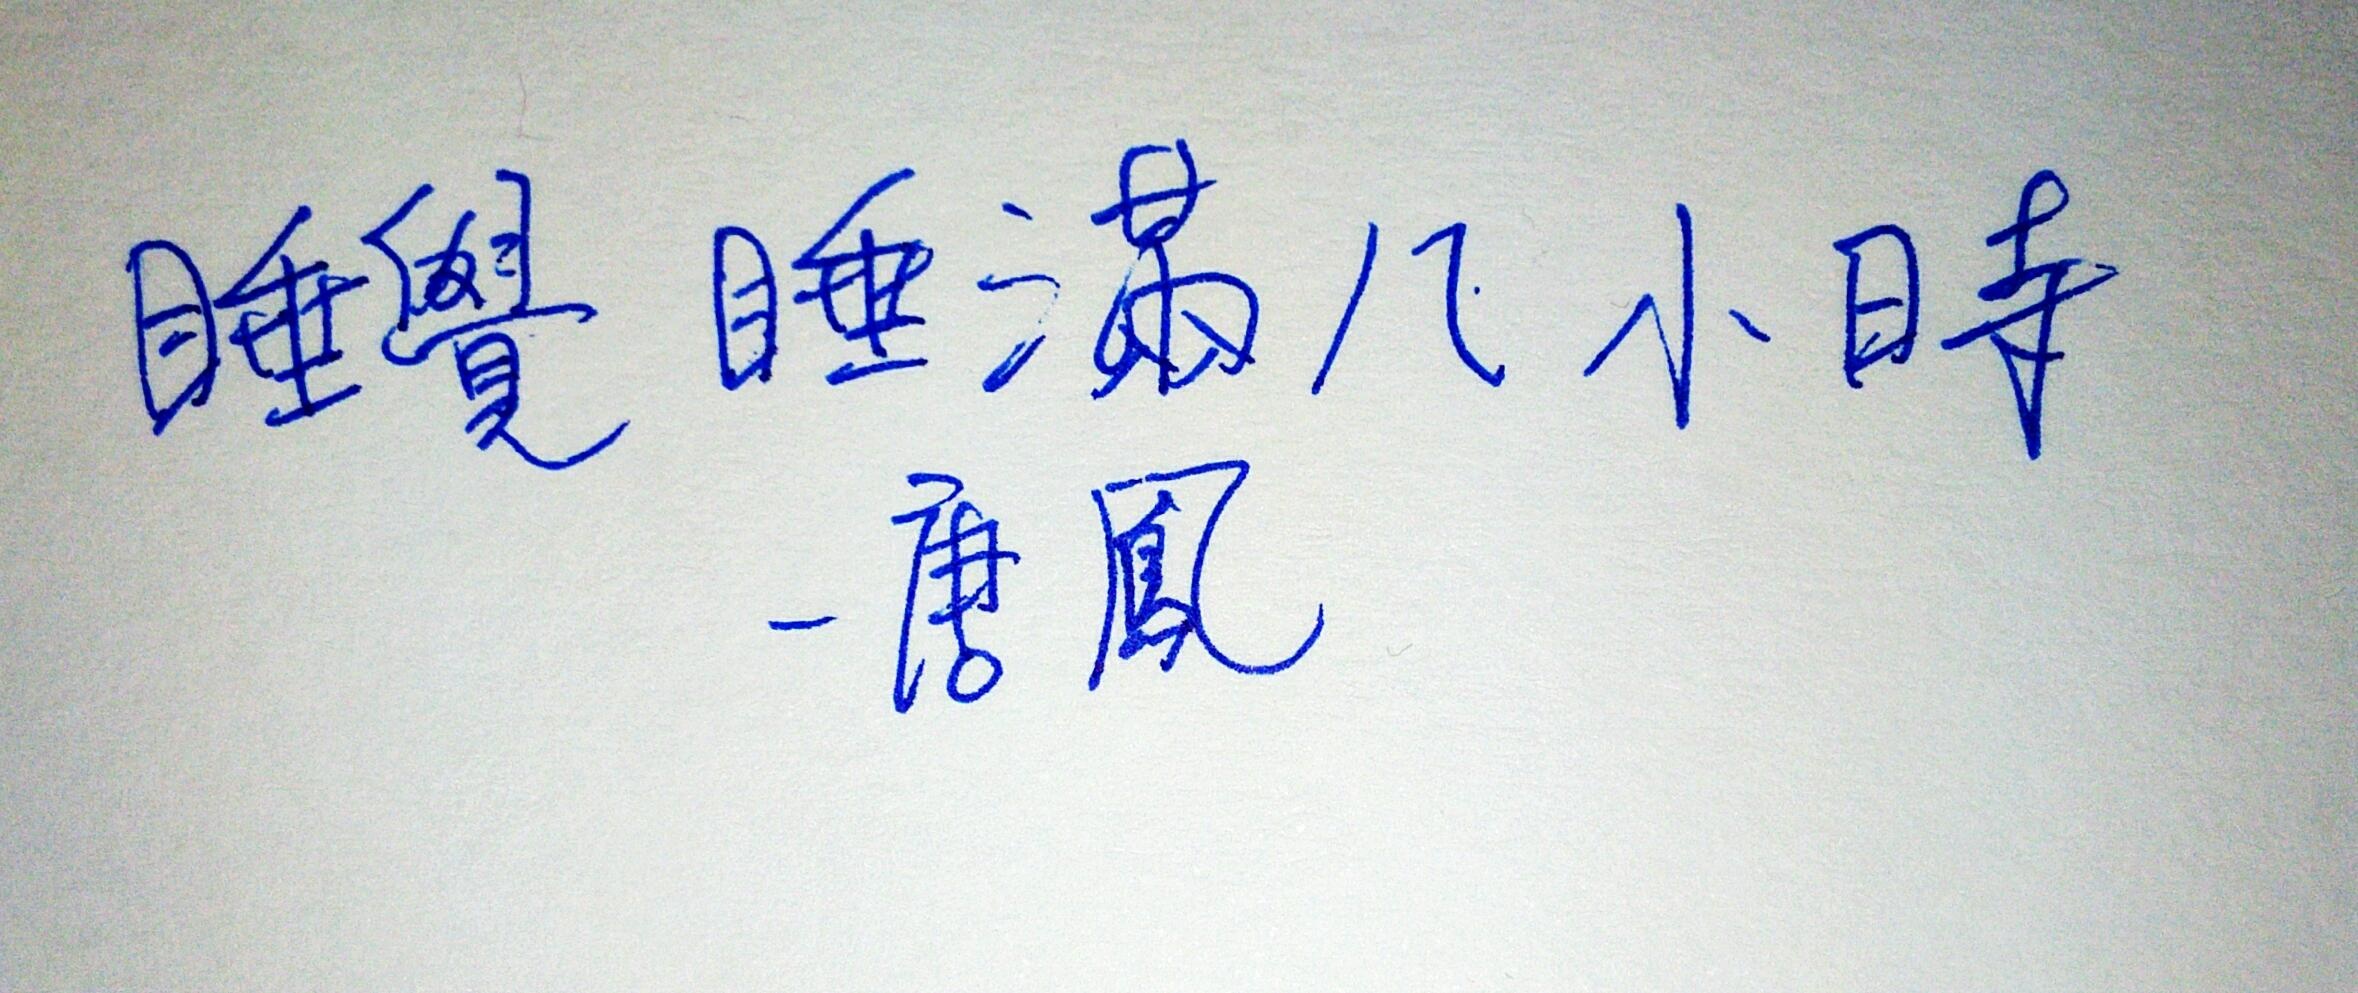 睡覺睡滿八小時
-唐鳳